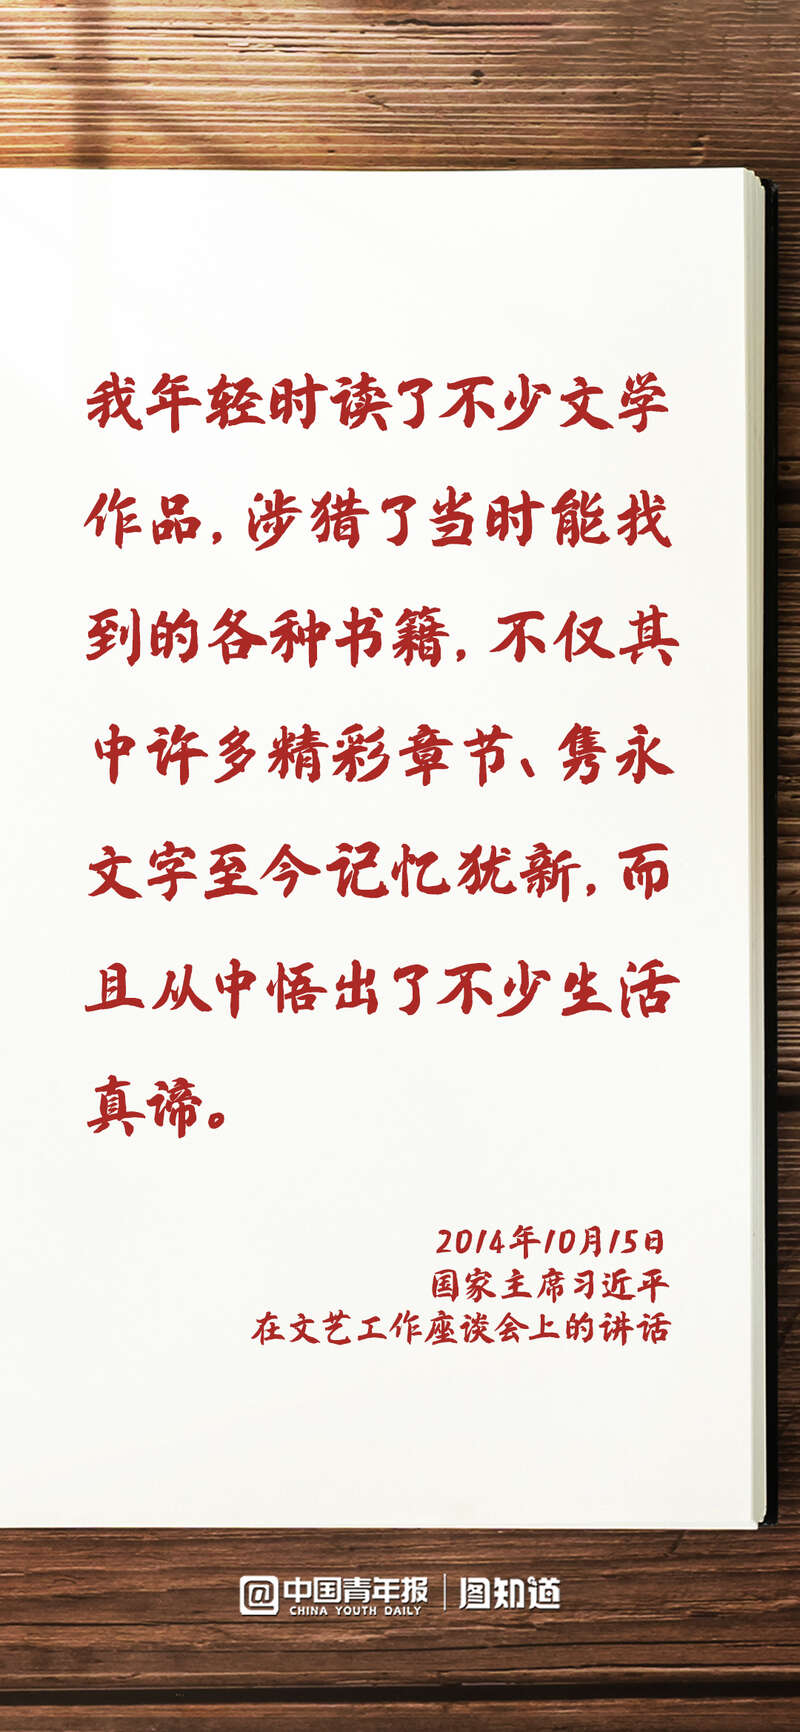 我年轻时读了不少文学
作品，涉猎了当时能找
到的各种书籍，不仅其
中许多精彩章节、隽永
文字至今记忆犹新，而
且从中悟出了不少生活
真谛。
2014年10月15日
国家主席习近平
在文艺工作座谈会上的讲话
@中国青年报 | 图知道
CHINA YOUTH DAILY